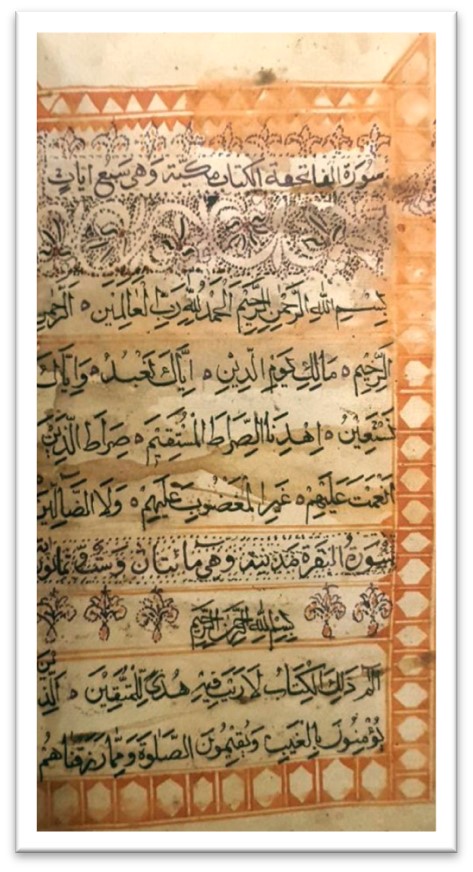 سورة الفاتحة الكتاب مكية وهي سبع ايات
بِسْمِ اللّٰهِ الرَّحْمٰنِ الرَّحِيْمِ الْحَمْدُ لِلّٰهِ رَبِّ الْعَالَمِيْنَ ٥ الرَّحْمٰنِ
الرَّحِيْمِ ٥ مَالِكِ يَوْمِ الدِّيْنِ ٥ اِيَّاكَ نَعْبُدُ ٥ وَاِيَّاكَ
نَسْتَعِيْنُ ٥ اِهْدِنَا الصِّرَاطَ الْمُسْتَقِيْمَ ٥ صِرَاطَ الَّذِيْنَ
اَنْعَمْتَ عَلَيْهِمْ ٥ غَيْرِ الْمَغْضُوْبِ عَلَيْهِمْ ٥ وَلَا الضَّالِّيْنَ
سُوْرَةُ الْبَقَرَةِ مَدَنِيَّة وهي مائتان وست وثمانون
بِسْمِ اللّٰهِ الرَّحْمٰنِ الرَّحِيْمِ
الم ذٰلِكَ الْكِتَابُ لَا رَيْبَ فِيْهِ هُدًى لِلْمُتَّقِيْنَ ٥ الَّذِيْنَ
يُؤْمِنُوْنَ بِالْغَيْبِ وَيُقِيْمُوْنَ الصَّلٰوةَ وَمِمَّا رَزَقْنَاهُمْ